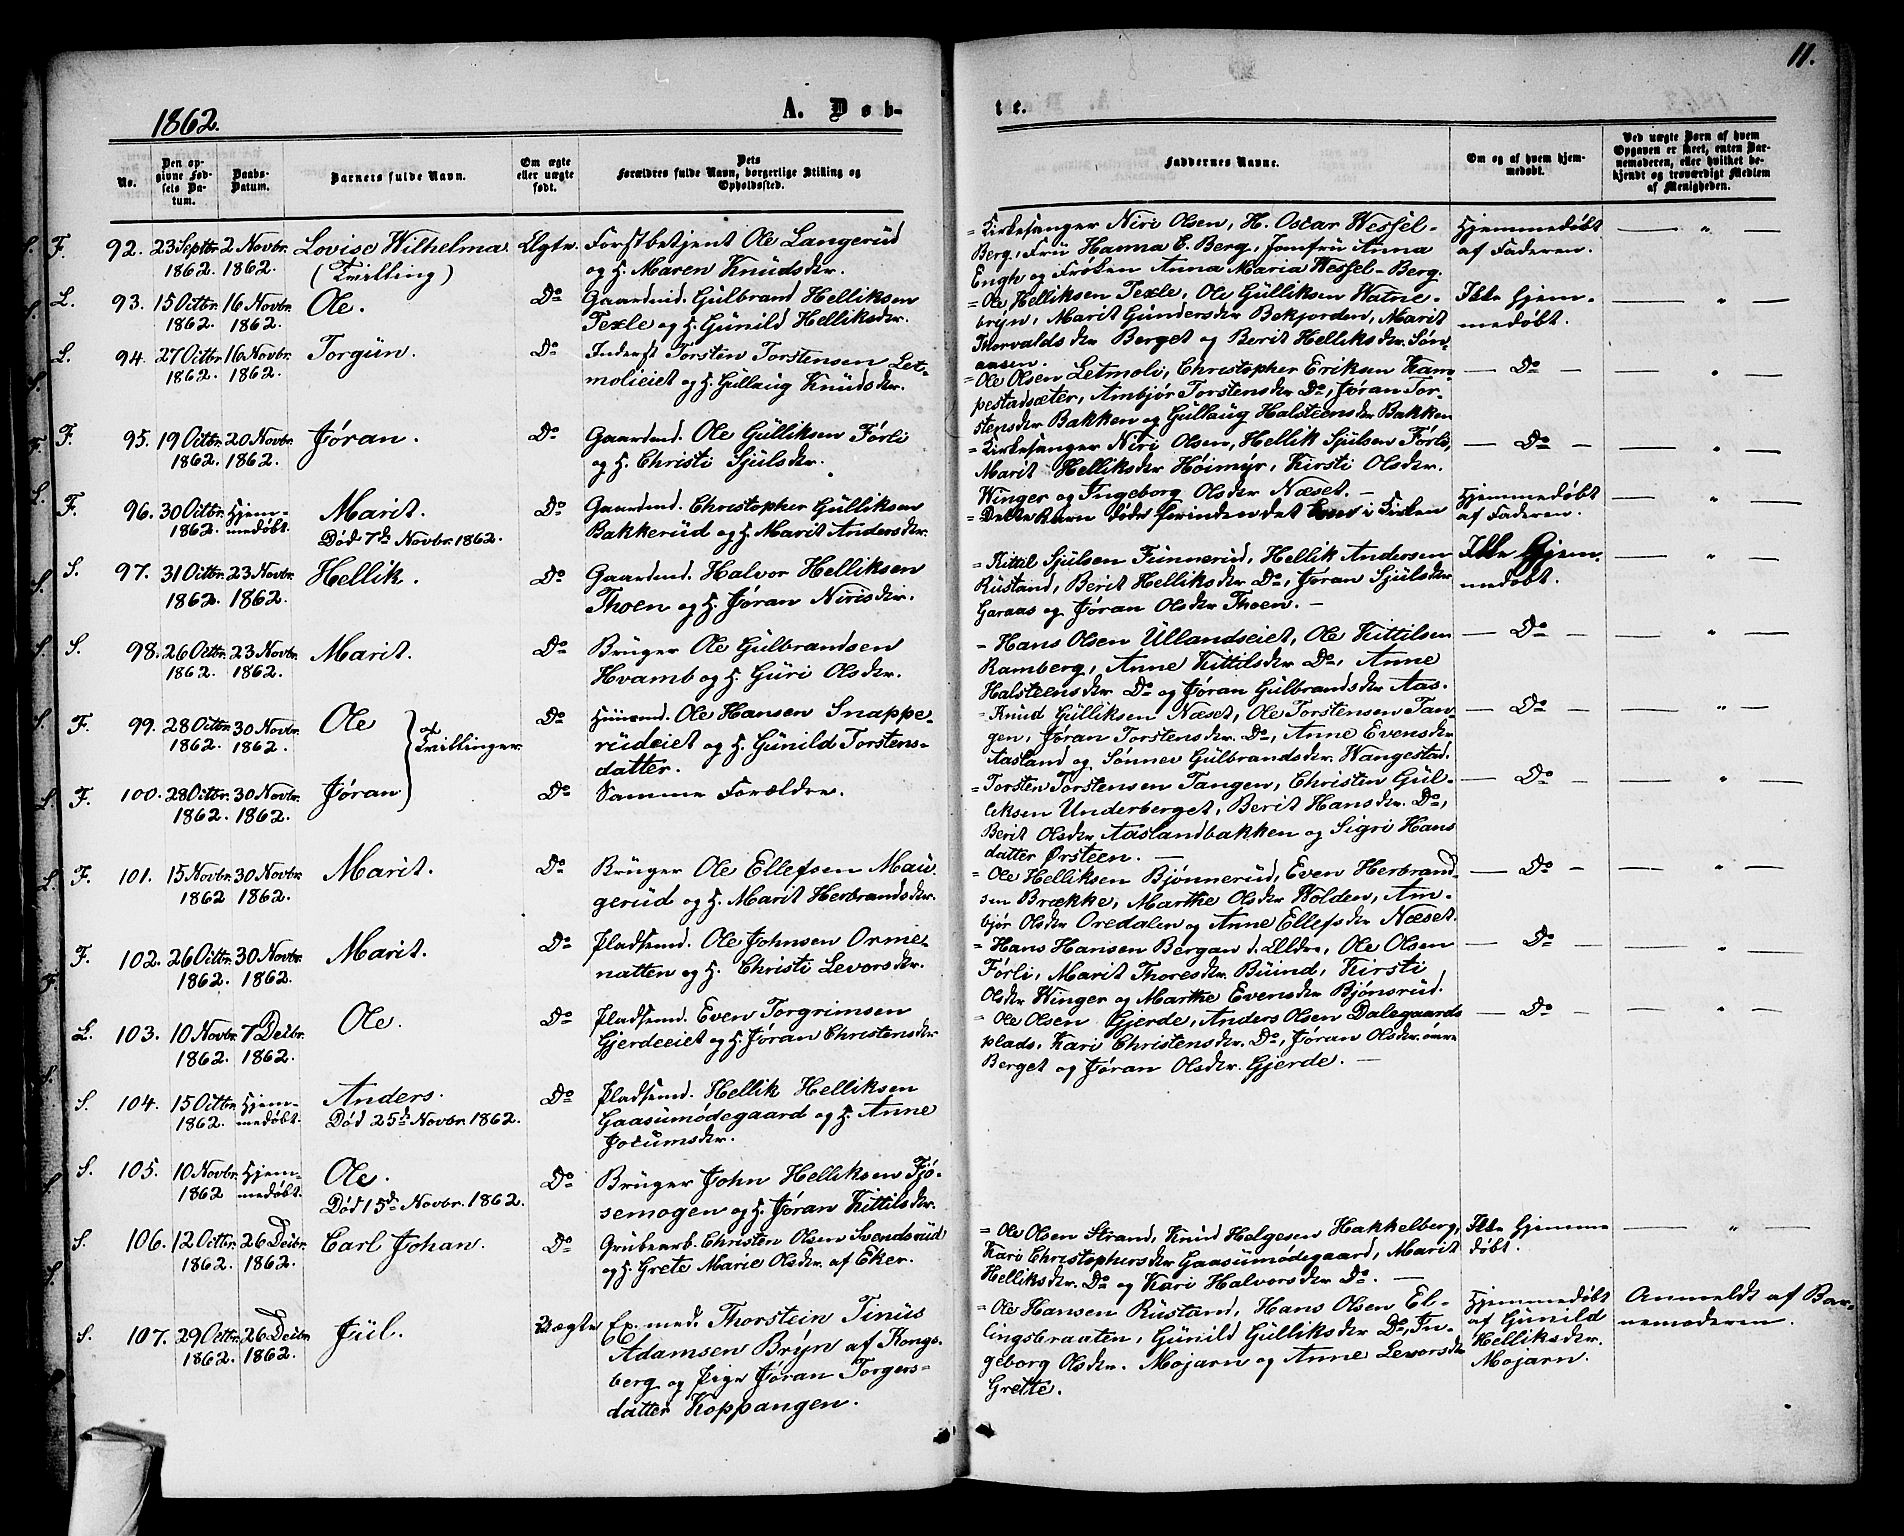 11.
1862.
A. Døb-
te.
No.
Den opgivne Fødsels Datum.
Daabs-Datum.
Barnets fulde Navn.
Om ægte eller uægte født.
Dets Forældres fulde Navn, borgerlige Stilling og Opholdssted.
Faddernes Navne.
Om og af hvem hjemmedøbt.
Ved uægte Børn af hvem Opgaven er skeet, enten Barnemoderen, eller hvilket bekjendt og troværdigt Medlem af Menigheden.
F. 92. 23 Septbr. 1862. 2 Novbr. 1862. Lovise Wilhelma (Tvilling) Ægte.
Forstbetjent Ole Langerud
og H. Maren Knudsdtr.
= Kirkesanger Niri Olsen, H. Oscar Wessel-
Berg, Fru Hanna E. Berg, Jomfru Anna
Engh og Frøken Anna Maria Wessel-Berg.
Hjemmedøbt
af Faderen.
— " —
L. 93. 15 Octbr. 1862. 16 Novbr. 1862. Ole. Do
Gaardmd. Gulbrand Helliksen
Texle og H. Gunild Helliksdtr.
= Ole Helliksen Texle, Ole Gulliksen Watne-
bryn, Marit Gundersdtr Bekjorden, Marit
Thorvaldsdtr Berget og Berit Helliksdtr Søn-
Ikke Hjem-
medøbt.
— " —
L. 94. 27 Octbr. 1862. 16 Novbr. 1862. Torgun. Do
Inderst Torsten Torstensen Let-
molieiet og H. Gullaug Knudsdtr.
= Ole Olsen Letmoli, Christopher Eriksen Kam-
pestadsæter, Ambjør Torstensdtr Do, Jøran Tor-
stensdtr Bakken og Gullaug Halsteensdtr Bakken
— Do —
— " —
F. 95. 19 Octbr. 1862. 20 Novbr. 1862. Jøran. Do
Gaardmd. Ole Gulliksen Førli
og H. Christi Sjulsdtr.
= Kirkesanger Niri Olsen, Hellik Sjulsen Førli,
Marit Helliksdtr Høimyr, Kirsti Olsdtr.
Winger og Ingeborg Olsdtr Næset. —
— Do —
— " —
F. 96. 30 Octbr. 1862. Hjemmedøbt. Marit.
Død 7de Novbr. 1862. Do
Gaardmd. Christopher Gulliksen
Bakkerud og H. Marit Andersdtr.
= Dette Barn døde forinden det kom i Kirken
Hjemmedøbt
af Faderen.
— " —
S. 97. 31 Octbr. 1862. 23 Novbr. 1862. Hellik. Do
Gaardmd. Halvor Helliksen
Thoen og H. Jøran Nirisdtr.
= Kittil Sjulsen Funnerud, Hellik Andersen
Rustand, Berit Helliksdtr Do, Jøran Sjulsdtr
Garaas og Jøran Olsdtr Thoen. —
Ikke Hjem-
medøbt.
— " —
S. 98. 26 Octbr. 1862. 23 Novbr. 1862. Marit. Do
Bruger Ole Gulbrandsen
Hvamb og H. Guri Olsdtr.
= Hans Olsen Ullandseiet, Ole Kittilsen
Ramberg, Anne Kittilsdtr Do, Anne
Halsteensdtr Do og Jøran Gulbrandsdtr Aas.
— Do —
— " —
F. 99. 28 Octbr. 1862. 30 Novbr. 1862. Ole Do
Tvillinger
Huusmd. Ole Hansen Snappe-
rudeiet og H. Gunild Torstens-
datter.
= Knud Gulliksen Næset, Ole Torstensen Tan-
gen, Jøran Torstensdtr. Do, Anne Evensdtr
Aasland og Sønnev Gulbrandsdtr. Wangestad.
— Do —
— " —
F. 100. 28 Octbr. 1862. 30 Novbr. 1862. Jøran Do
Samme Forældre.
= Torsten Torstensen Tangen, Christen Gul-
liksen Underberget, Berit Hansdtr. Do,
Berit Olsdtr Aaslandbakken og Sigri Hans
datter Ørsteen. —
— Do —
— " —
F. 101. 15 Novbr. 1862 30 Novbr. 1862. Marit. Do
Bruger Ole Ellefsen Mau-
gerud og H. Marit Herbrandsdtr.
= Ole Helliksen Bjønnerud, Even Herbrand-
sen Brække, Marthe Olsdtr Wolden, Am-
bjør Olsdtr Oredalen og Anne Ellefsdtr Næset.
— Do —
— " —
F. 102. 26 Octbr. 1862. 30 Novbr. 1862. Marit. Do
Pladsmd. Ole Johnsen Orme-
natten og H. Christi Levorsdtr.
= Hans Hansen Bergan d. Eldre, Ole Olsen
Førli, Marit Thoresdtr. Buind, Kirsti
Olsdtr Winger og Marthe Evensdtr Bjønsrud.
— Do —
— " —
L. 103. 10 Novbr. 1862. 7 Decbr. 1862. Ole. Do
Pladsmd. Even Torgrimsen
Gjerdeeiet og H. Jøran Christensdtr.
= Ole Olsen Gjerde, Anders Olsen Dalegaards
plads, Kari Christensdtr. Do, Jøran Olsdtr. øvre
Berget og Jøran Olsdtr. Gjerde. —
— Do —
— " —
S. 104. 15 Octbr. 1862. Hjemmedøbt. Anders.
Død 25de Novbr. 1862. Do
Pladsmd. Hellik Helliksen
Gaasumødegaard og H. Anne
Jocumsdtr.
S. 105. 10 Novbr. 1862 Hjemmedøbt. Ole.
Død 15de Novbr. 1862. Do
Bruger John Helliksen Fjø-
semogen og H. Jøran Kittilsdtr.
S. 106. 12 Octbr. 1862. 26 Decbr. 1862. Carl Johan. Do
Grubearb. Christen Olsen Svendsrud
og H. Grete Marie Olsdtr. af Eker.
= Ole Olsen Strand, Knud Helgesen Hakkelberg,
Kari Christophersdtr Gaasumødegaard, Marit
Helliksdtr. Do og Kari Halvorsdtr Do. —
Ikke Hjemme
døbt.
— " —
S. 107. 29 Octbr. 1862. 26 Decbr. 1862. Juul. Uægte
Ev. med. Thorstein Tinius
Adamsen Bryn af Kongs-
berg og Pige Jøran Torgers-
datter Koppangen.
= Ole Hansen Rustand, Hans Olsen El-
lingsbraaten, Gunild Gulliksdtr Do, In-
geborg Olsdtr. Mojarn og Anne Levorsdtr
Grette.
Hjemmedøbt
af Gunild
Helliksdtr.
Mojarn.
Anmeldt af Bar-
nemoderen.